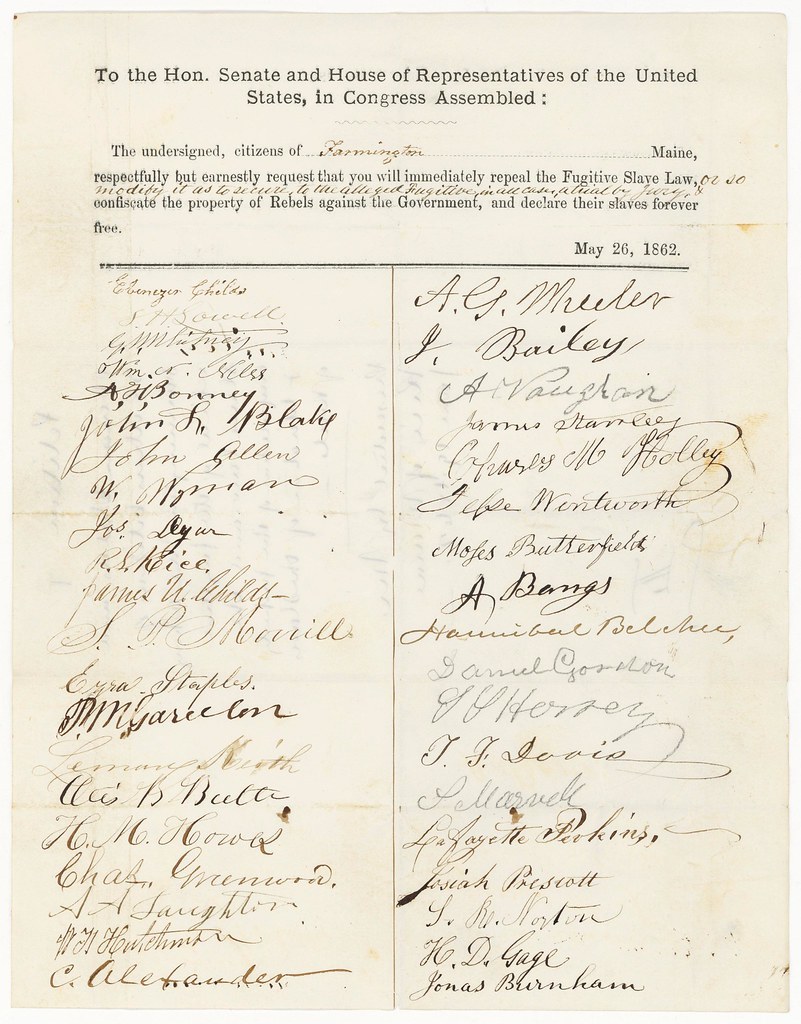 To the Hon. Senate and House of Representatives of the United
States, in Congress Assembled:
The undersigned, citizens of Farmington Maine,
respectfully but earnestly request that you will immediately repeal the Fugitive Slave Law, or so
modify it as to secure, to the alleged Fugitive, in all cases, a trial by jury, &
confiscate the property of Rebels against the Government, and declare their slaves forever
free.
May 26, 1862.
Ebenezer Childs
G. M. Whitney
Wm.
A. H. Bonney
John L. Blake
John Allen
W. Wyman
Jos. Dyar
R. S. Rice.
James U. Childs
S. P. Morrill
Ezra Staples.
Leman Keith
H. M. Howes
Chas. Greenwood.
C. Alexander
A. G. Wheeler
J. Bailey
A Vaughan
James Stanley
Charles M Holley
Jesse Wentworth
Moses Butterfield
A Bangs
Hannibal Belcher,
Daniel Gordon
T. F. Davis
Lafayette Perkins.
Josiah Prescott
S. R. Norton
H. D. Gage
Jonas Burnham